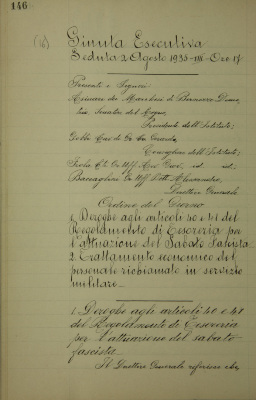 146
Giunta Esecutiva
Seduta 2 Agosto 1935 - XIII - Ore 17
Presenti i Signori:
dei Marchesi di
Senatore del Regno,
Presidente dell'Istituto;
Consigliere dell'Istituto;
id. id.
Direttore Generale
Ordine del Giorno
1. Deroghe agli articoli 40 e 41 del
Regolamento di Tesoreria per
l'attuazione del Sabato fascista
2. Trattamento economico del
personale richiamato in servizio
militare.
1. Deroghe agli articoli 40 e 41
del Regolamento di Tesoreria
per l'attuazione del sabato
fascista
Il Direttore Generale riferisce che